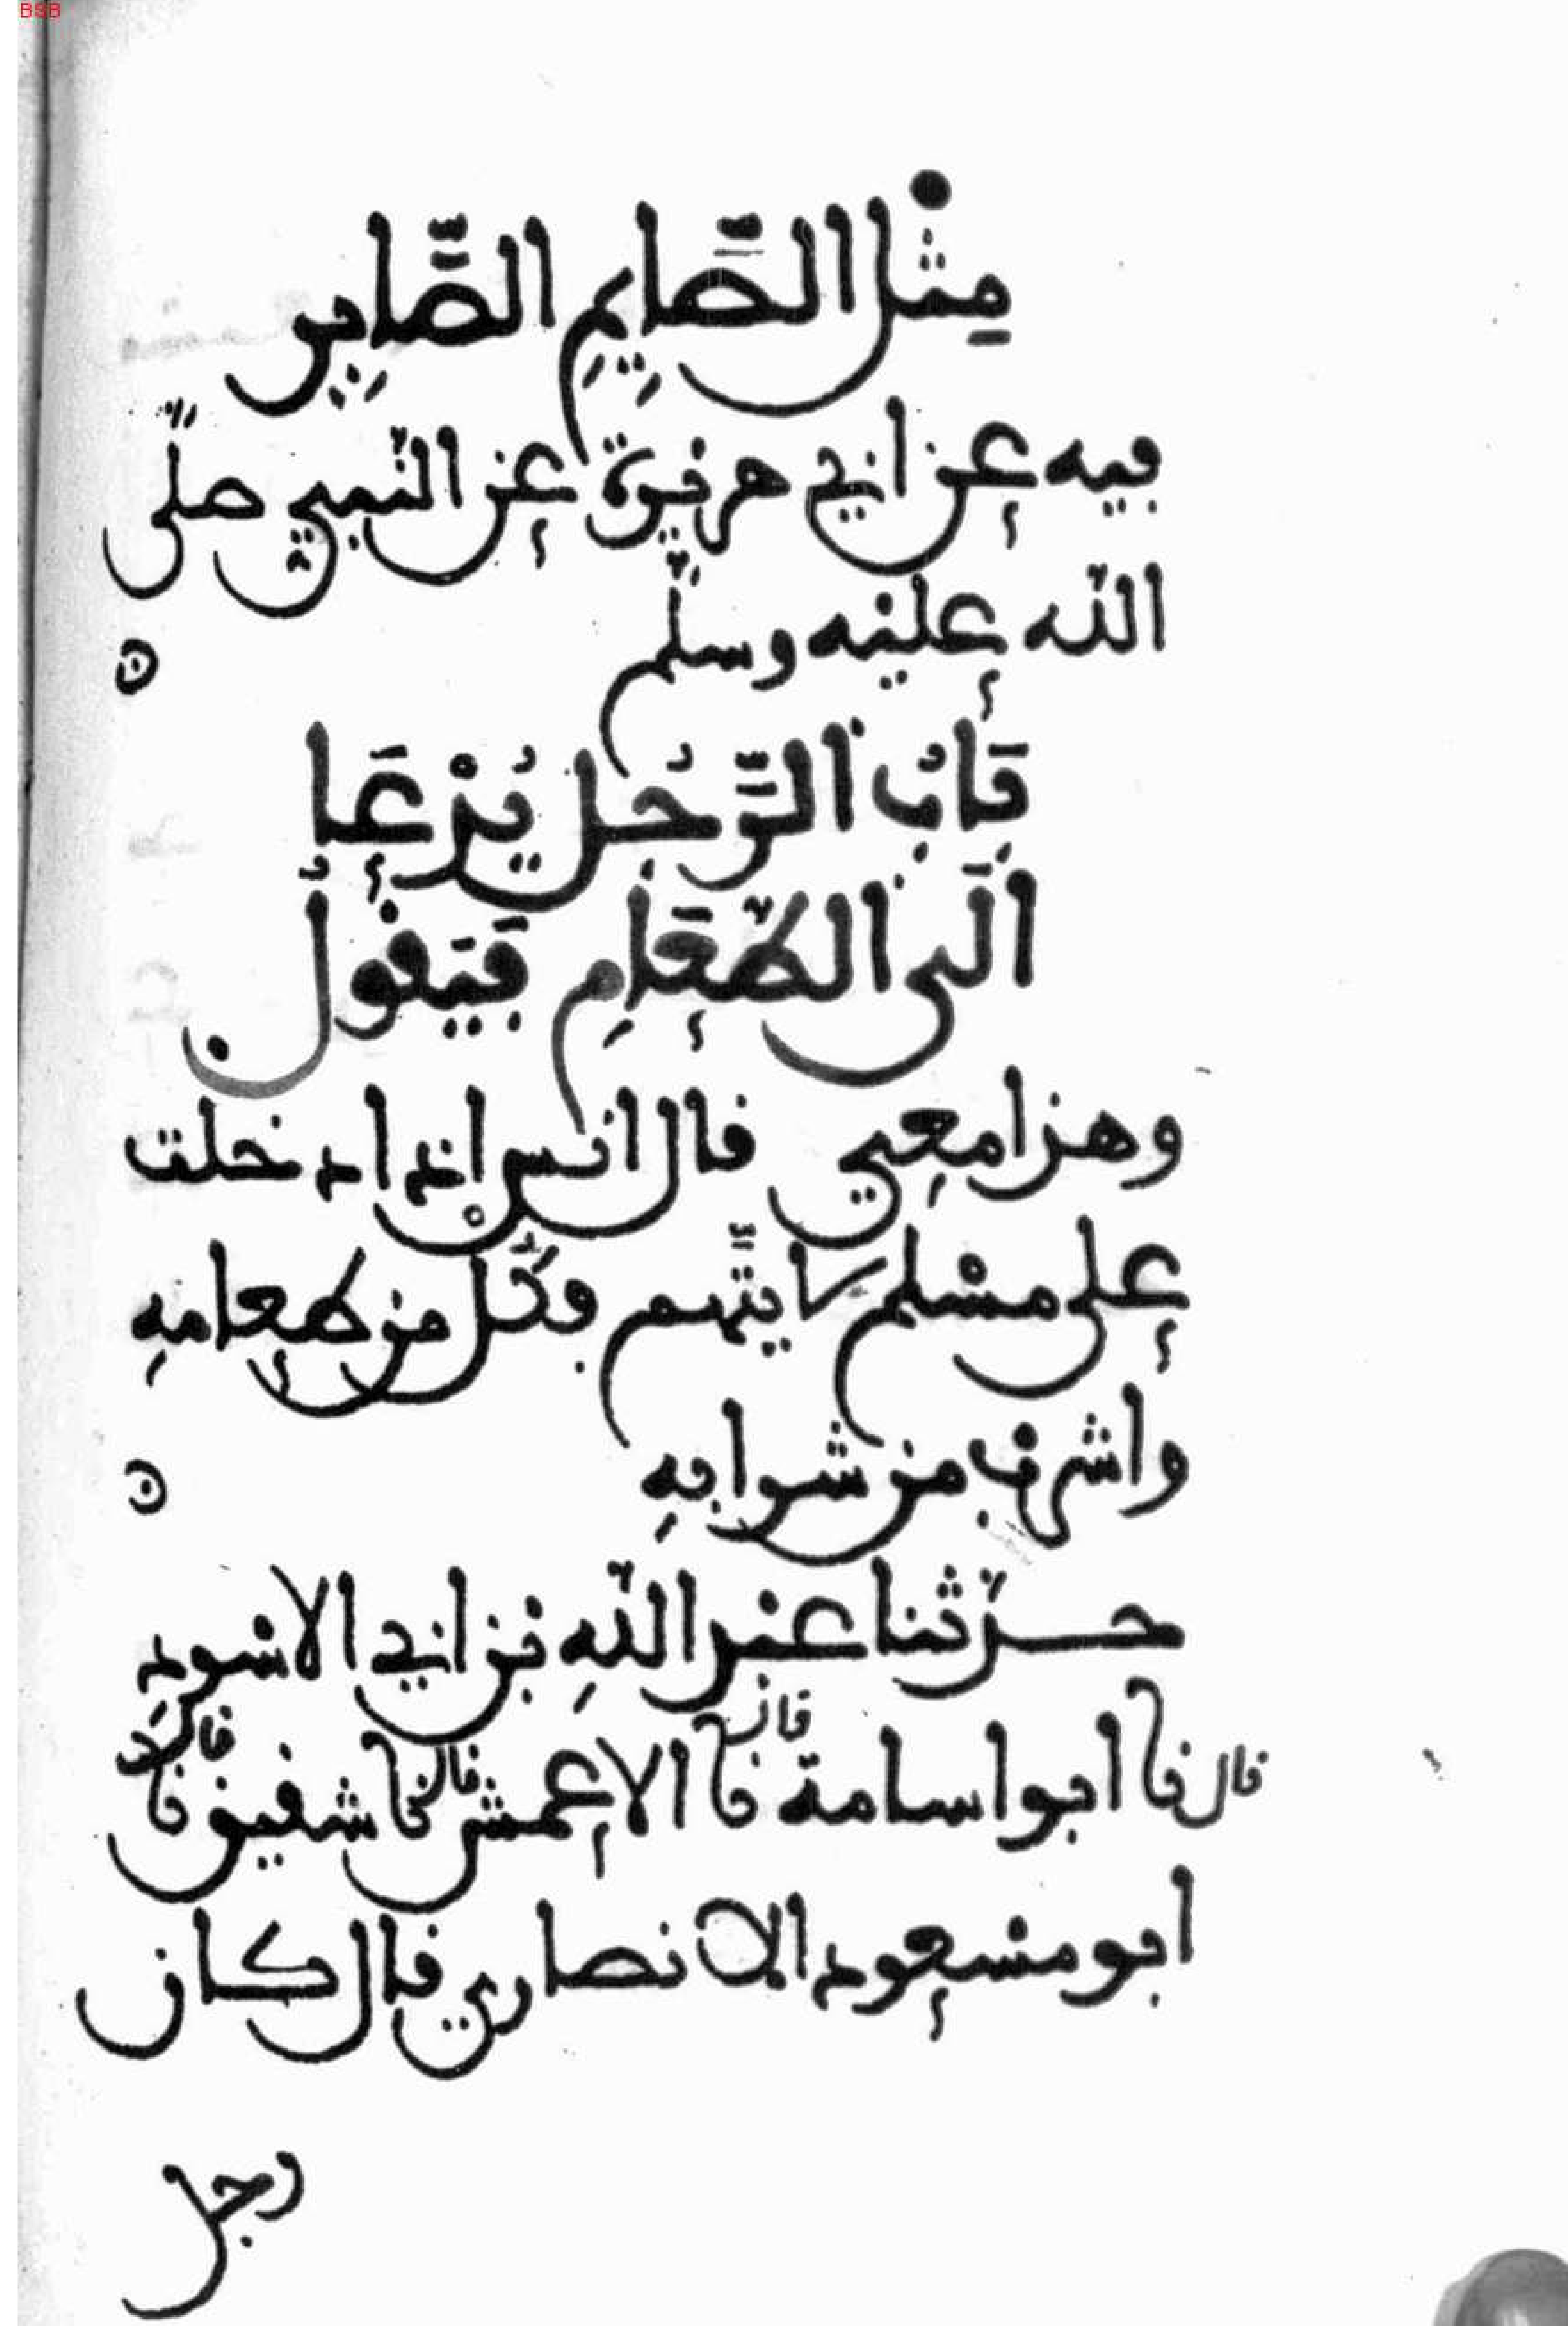 BSB
مِثْل الصَّايِمِ الصَّابِر
فيه عن ابي هريرة عن النّبي صلّى
الله عليه وسلّم
بَابُ الرَّجُل يُدْعَا
الَى الطَّعَامِ فَيَقولُ
وهذا معِي قال انس اذا دخلت
على مسْلم لا يتَّهم فكُل من طعامهِ
واشرب من شرابهِ
حدّثنا عبد اللهِ بن ابي الاسودِ
قال نا ابو اسامة قال نا الاعمش قال نا شقيق قال نا
ابو مسْعود الانصاري قال كان
رجل